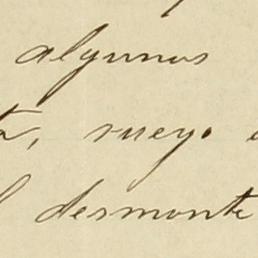 algunos
, ruego
l desmonte